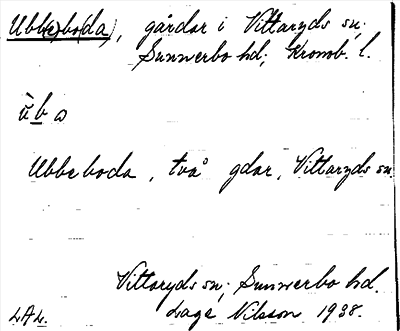 Ubb(e)bo(da), gårdar i Vittaryds sn;
Sunnerbo hd; Kronob. l.
ùba
Ubbeboda, två gdar, Vittaryds sn
Vittaryds sn; Sunnerbo hd.
LAL. Lage Nilsson 1938.